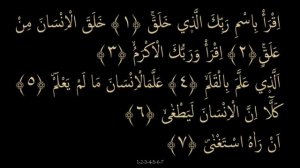 اِقْرَأْ بِاسْمِ رَبِّكَ الَّذ۪ي خَلَقَۚ ﴿١﴾ خَلَقَ الْاِنْسَانَ مِنْ
عَلَقٍۚ ﴿٢﴾ اِقْرَأْ وَرَبُّكَ الْاَكْرَمُۙ ﴿٣﴾
اَلَّذ۪ي عَلَّمَ بِالْقَلَمِۙ ﴿٤﴾ عَلَّمَ الْاِنْسَانَ مَا لَمْ يَعْلَمْۜ ﴿٥﴾
كَلَّٓا اِنَّ الْاِنْسَانَ لَيَطْغٰىۙ ﴿٦﴾
اَنْ رَاٰهُ اسْتَغْنٰىۜ ﴿٧﴾
1-2-3-4-5-6-7